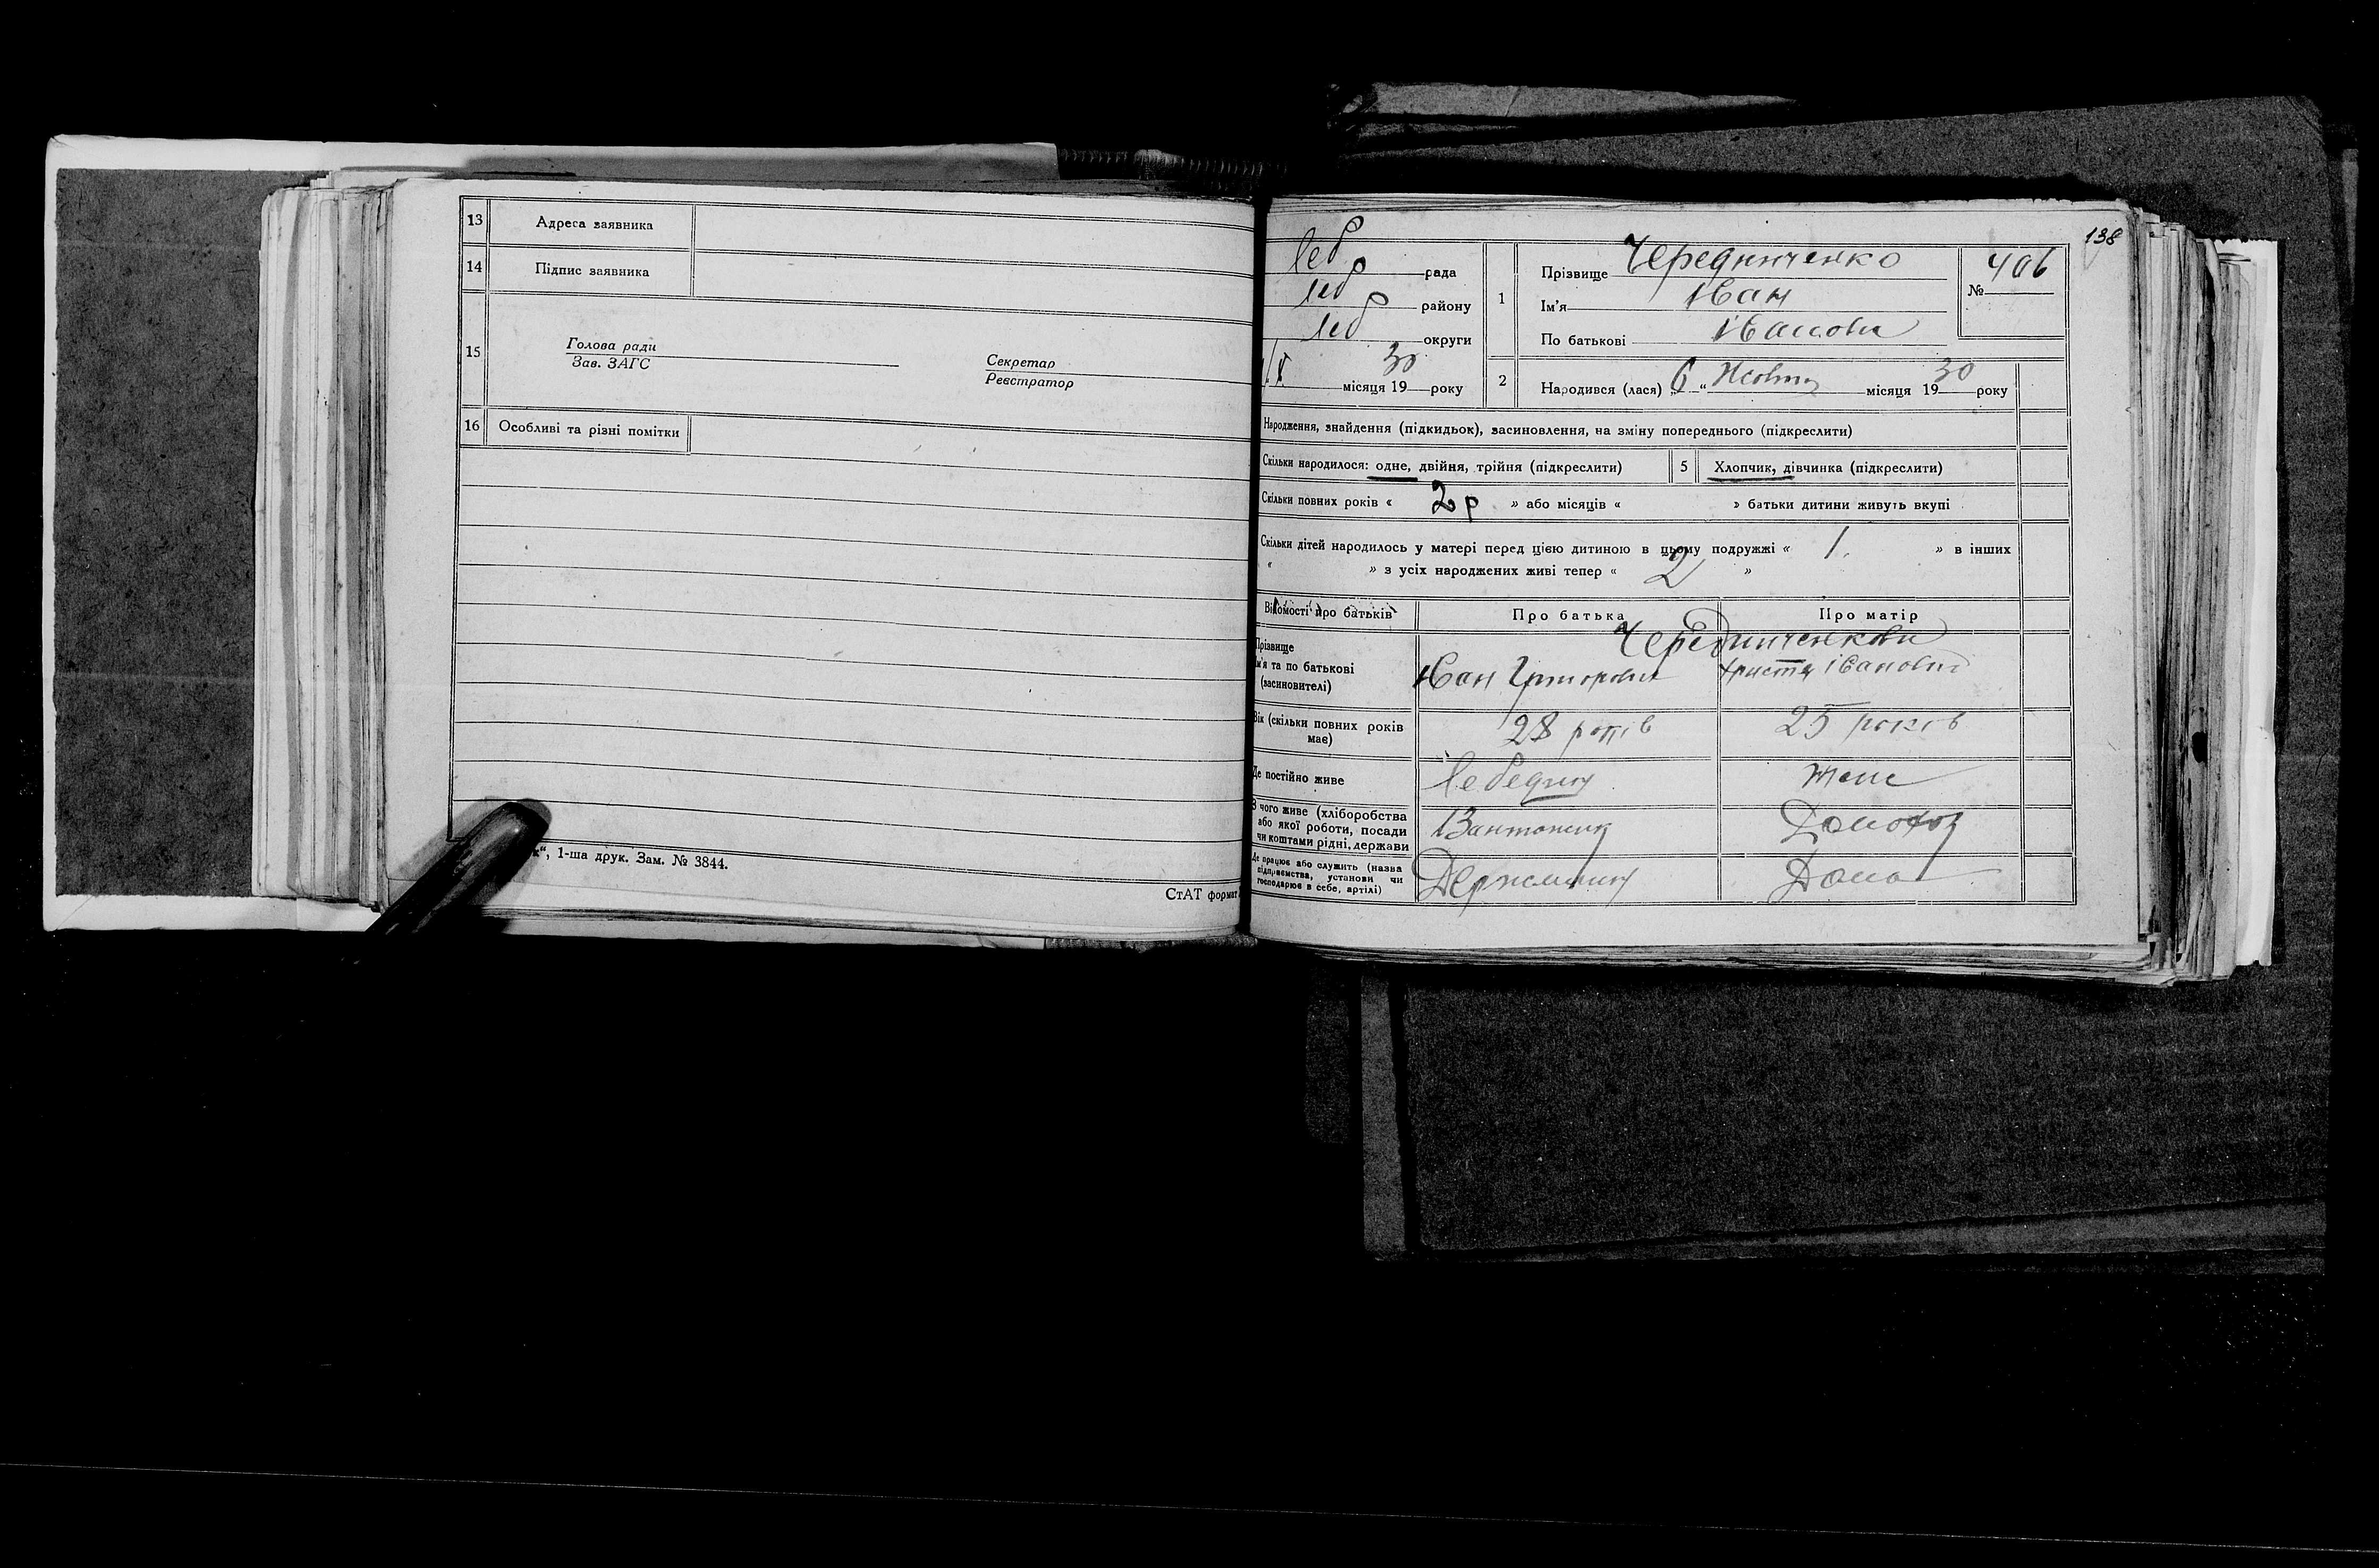 13 Адреса заявника
14 Підпис заявника
15 Голова ради
Зав. ЗАГС
Секретар
Реєстратор
16 Особливі та різні помітки
1-ша друк. Зам. № 3844.
СтАТ формат
138
Леб. рада
Леб. району
Леб. округи
місяця 1930 року
1 Прізвище Чередниченко
Ім'я Іван
По батькові Іванович
№ 406
2 Народився (лася) „6 “ Жовтня місяця 1930 року
Народження, знайдення (підкидьок), засиновлення, на зміну попереднього (підкреслити)
Скільки народилося: одне, двійня, трійня (підкреслити) 5 Хлопчик, дівчинка (підкреслити)
Скільки повних років « 2 р » або місяців « » батьки дитини живуть вкупі
Скільки дітей народилось у матері перед цією дитиною в цьому подружжі « 1. » в інших
« » з усіх народжених живі тепер « 2 »
Відомості про батьків Про батька Про матір
Прізвище Чередниченкови
Ім'я та по батькові Іван Григорович Христя Івановна
(засновителі)
Вік (скільки повних років має) 28 років 25 років
Де постійно живе Лебедин теж
З чого живе (хліборобства
або якої роботи, посади
чи коштами рідні, держави
Домохоз
Де працює або служить (назва
підприємства, установи чи
господарює в себе, артілі)
Держмлин Дома